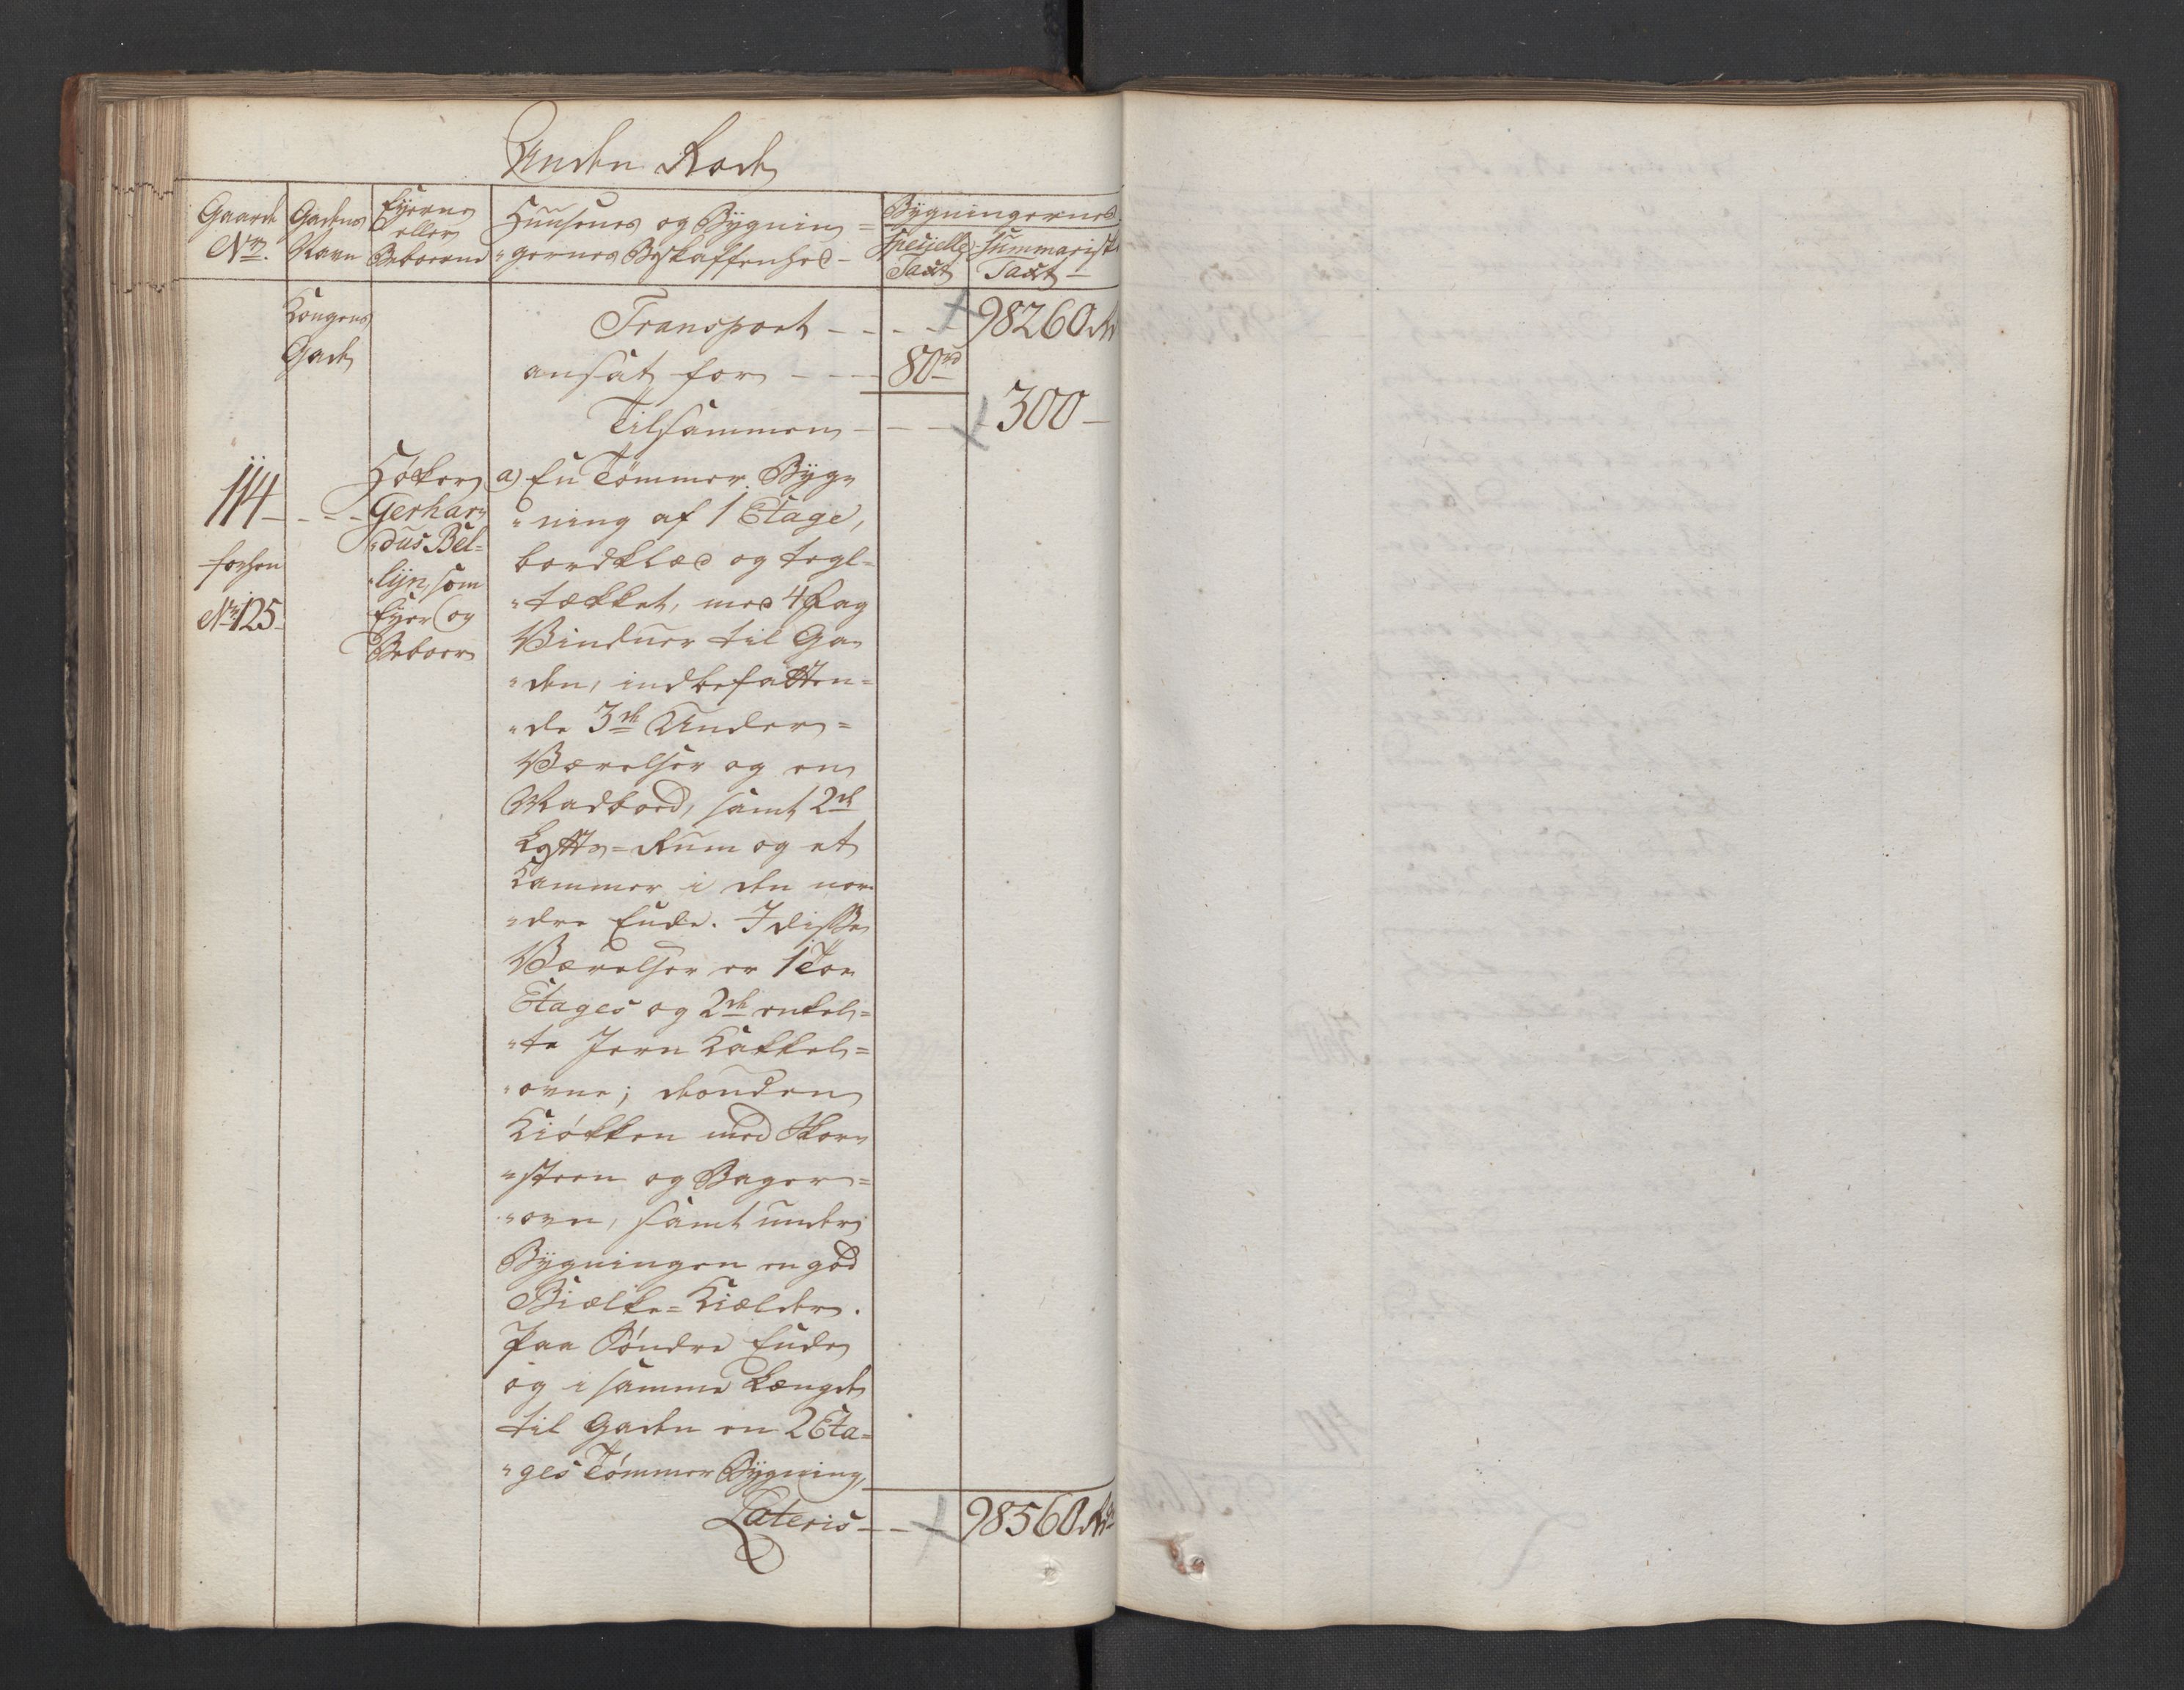 Anden Rode
Gaardens No.
Gadens Navn
Eyerne eller Beboerne
Huusenes og Bygnin=
"gernes Beskaffenhed
Bygningernes
Specielle Taxt
Summariske Taxt
Kongens Gade
Transport - - - - 98260 Rd
ansat for - - - 80 rd
Tilsammen - - - 300 -
114 - - - -
forhen
No. 125
Høker
Gerhar=
"dus Bel=
"lijn, som
Eyer og
Beboer
a) En Tømmer Byg=
"ning af 1 Etage,
bordklæd og tegl=
"tækket, med 4 Fag
Vinduer til Ga=
"den, indbefatten=
"de 3de Under=
Værelser og en
Madbod, samt 2de
Lofts=Rum og et
Kammer i den nor=
"dre Ende. I disse
Værelser er 1 Toe
Etages og 2de enkel=
"te Jern Kakkel=
"ovne; desuden
Kiøkken med Skor=
"steen og Bager=
"ovn, samt under
Bygningen en god
Bielke=Kielder.
Paa Søndre Ende
og i samme Længde
til Gaden en 2 Eta=
"ges Tømmer Bygning,
Lateris - - - 98560 Rd